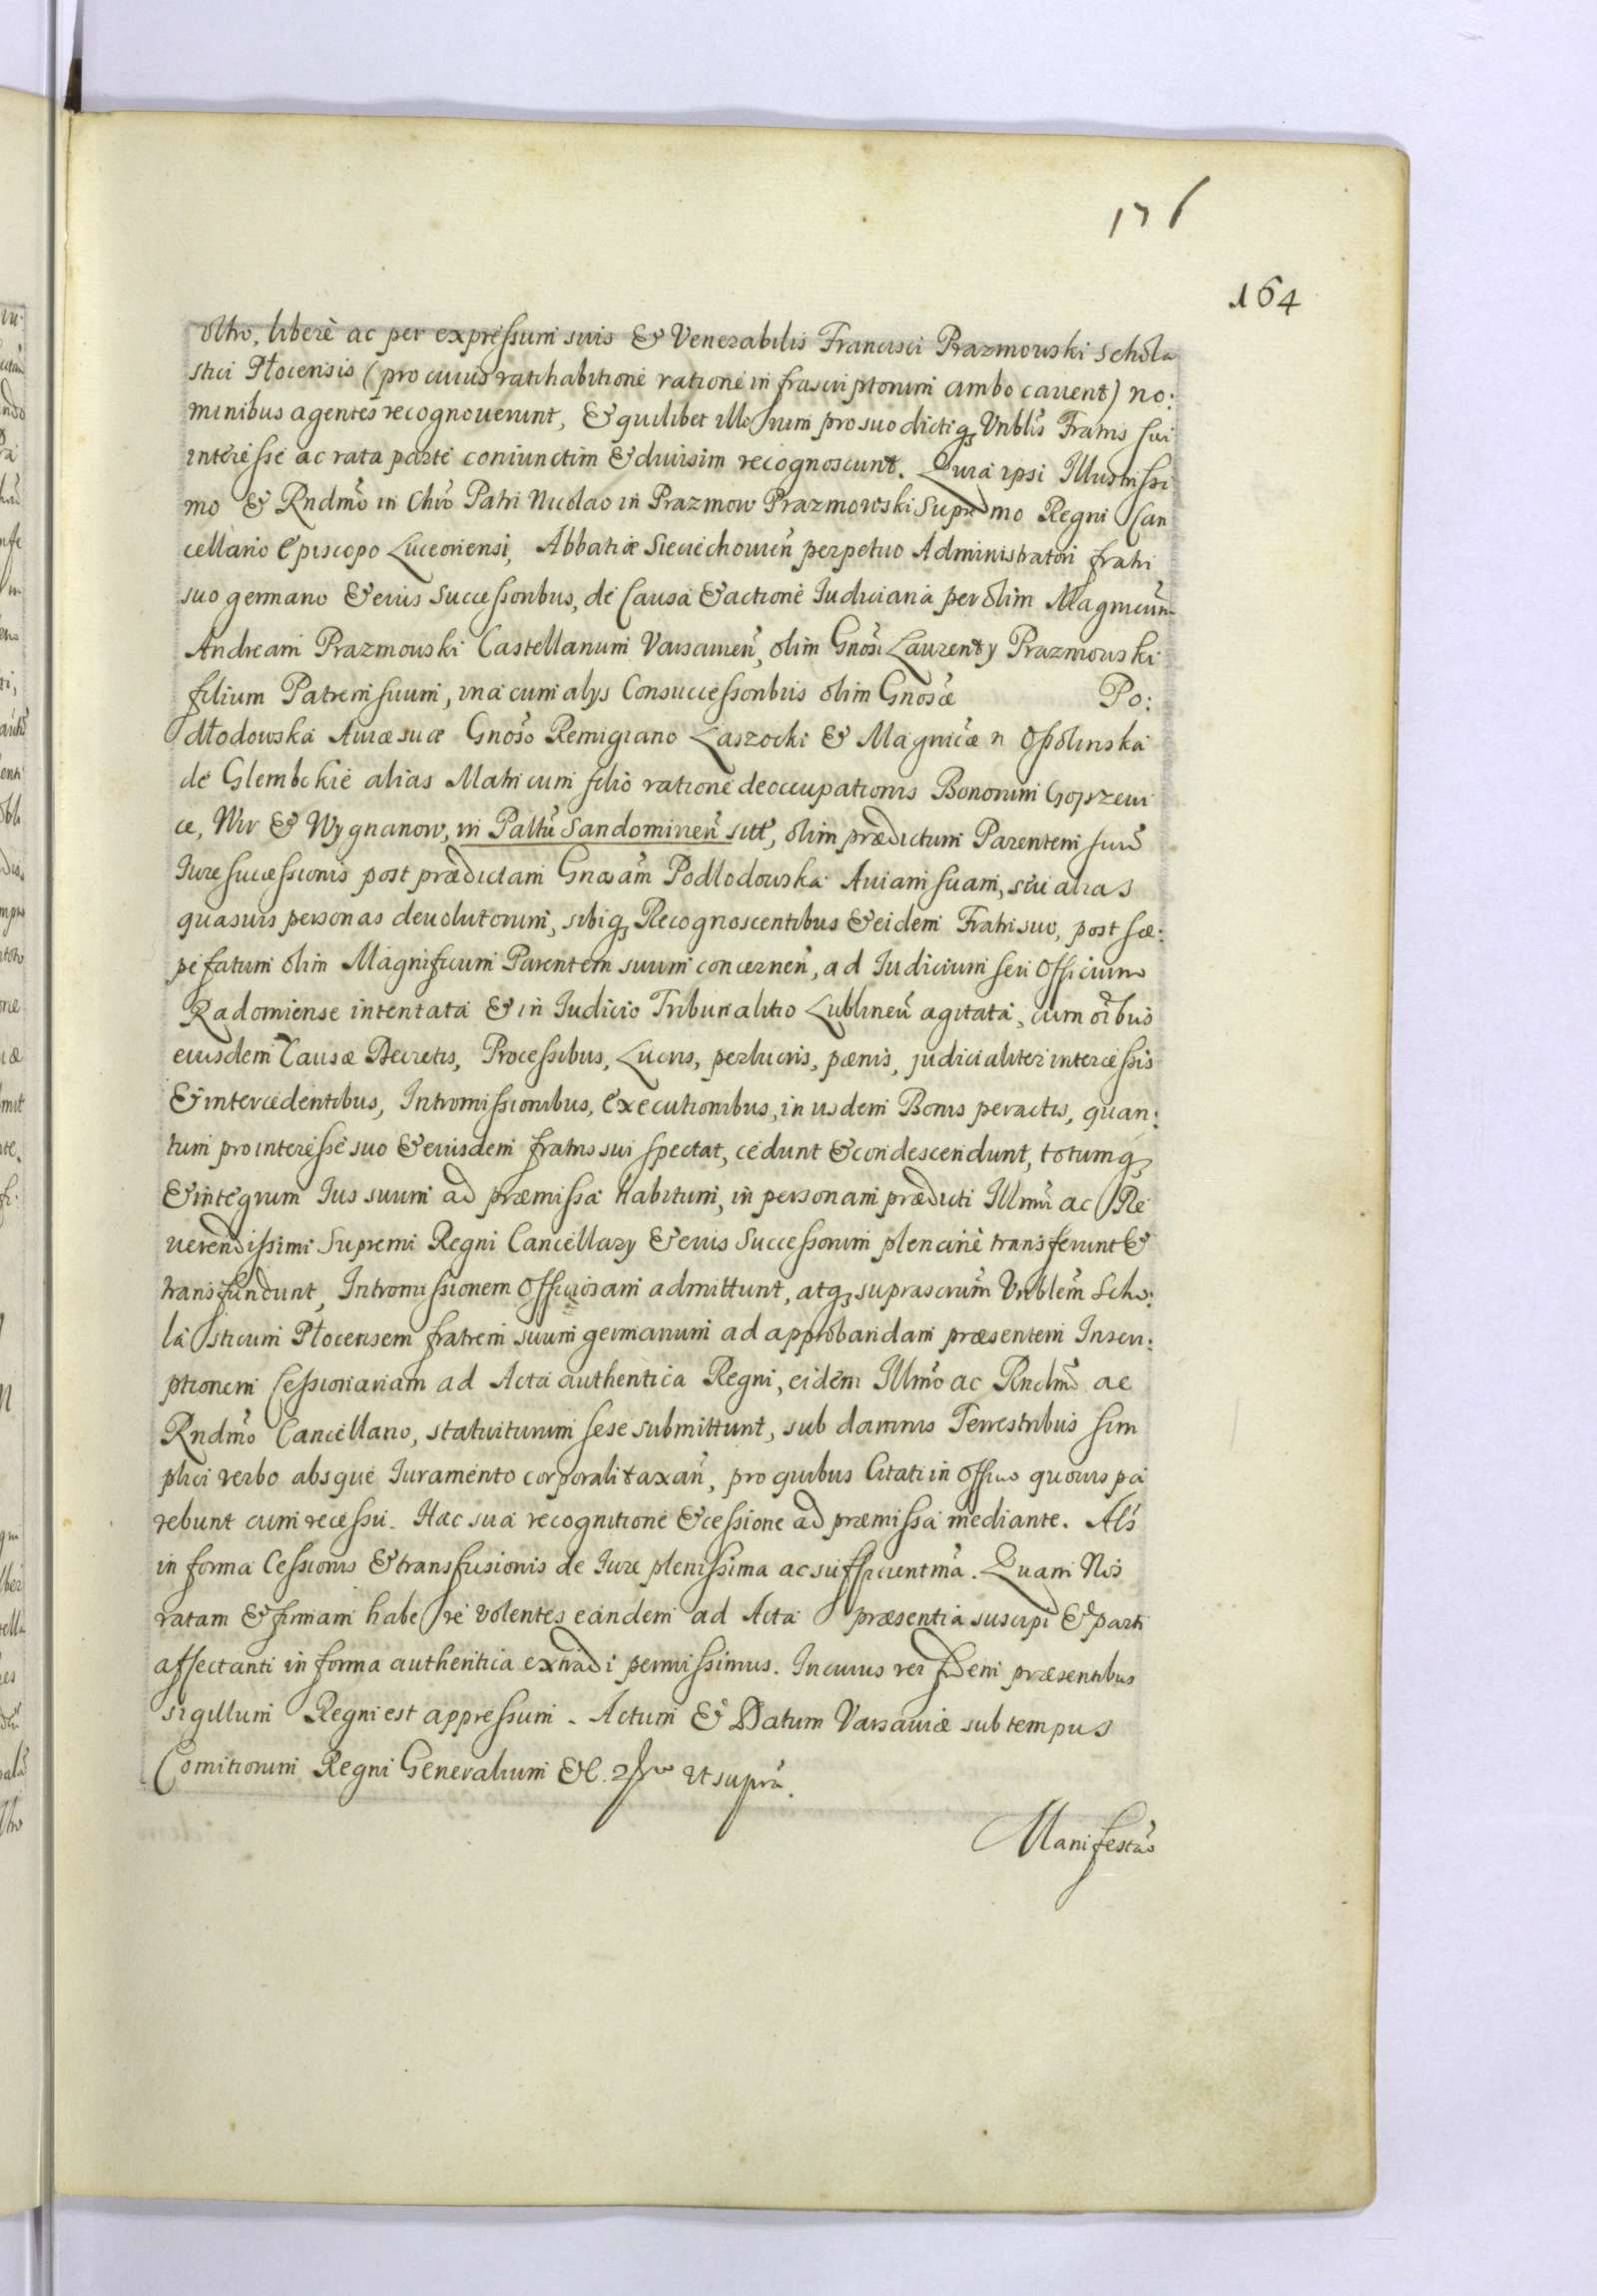 176
164
oltro, liberè ac per expressum suis & Venerabilis Francisci Prazmowski schola
stici Płocensis (pro cuius ratihabitione ratione infrascriptorum ambo cauent) no:
minibus agentes recognouerunt, & quilibet illorum pro suo dictiq3 Vnblis Fratris sui
interesse ac rata parte coniunctim & diuisim recognoscunt. Quia ipsi Illustrissi
mo & Rndmo in Chro Patri Nicolao in Prazmow Prazmowski Supremo Regni Can
cellario Episcopo Luceoriensi, Abbatiæ Sieciechouien perpetuo Administratori fratri
suo germano & eius Successoribus, de Causa & actione Iudiciaria per olim Magnicum
Andream Prazmouski Castellanum Varsauien, olim Gnosi Laurenty Prazmouski
filium Patrem suum, una cum alys Consuccessoribus olim Gnosæ Po:
dłodowska Auiæ suæ Gnoso Remigiano Laszocki & Magnicæ n Opolinska
de Glembckie alias Matri cum filio ratione deoccupationis Bonorum Gorzeui
ce, Wir & Wygnanow, in Paltu Sandomirien sitt, olim prædictum Parentem suum
Iure successionis post prædictam Gnosam Podlodowska Auiam suam, siui alias
quasuis personas deuolutorum, sibiq3 Recognoscentibus & eidem Fratri suo, post sæ:
pefatum olim Magnificum Parentem suum concernen, ad Iudicium seu Officium
Radomiense intentata & in Iudicio Tribunalitio Lublinen agitata, cum oibus
eiusdem Causæ Decretis, Processibus, Lucris, perlucris, pænis, judicialiter intercessis
& intercedentibus, Intromissionibus, Executionibus, in ysdem Bonis peractis, quan:
tum pro interesse suo & eiusdem fratris sui spectat, cedunt & condescendunt, totumq3
& integrum Ius suum ad præmissa habitum, in personam prædicti Illmi ac Re
uerendissimi Supremi Regni Cancellary & eius Successorum plenariè transferunt &
transfundunt, Intromissionem Officiosam admittunt, atq3 suprascrum Vnblem Scho:
lasticum Płocensem fratrem suum germanum ad approbandam præsentem Inscri:
ptionem Cessionariam ad Acta authentica Regni, eidem Illmo ac Rndmo ac
Rndmo Cancellario, statuiturum sese submittunt, sub damnis Terrestribus sim
plici verbo absque Iuramento corporali taxan, pro quibus Citati in Officio quouis pa
rebunt cum recessu. Hac sua recognitione & cessione ad præmissa mediante. Als
in forma Cessionis & transfusionis de Iure plenissima ac sufficientma. Quam Nos
ratam & firmam habere volentes eandem ad Acta præsentia suscipi & parti
affectanti in forma authentica extradi permissimus. In cuius rei fidem præsentibus
sigillum Regni est appressum. Actum & Datum Varsauiæ sub tempus
Comitiorum Regni Generalium &c. ut supra.
Manifestao